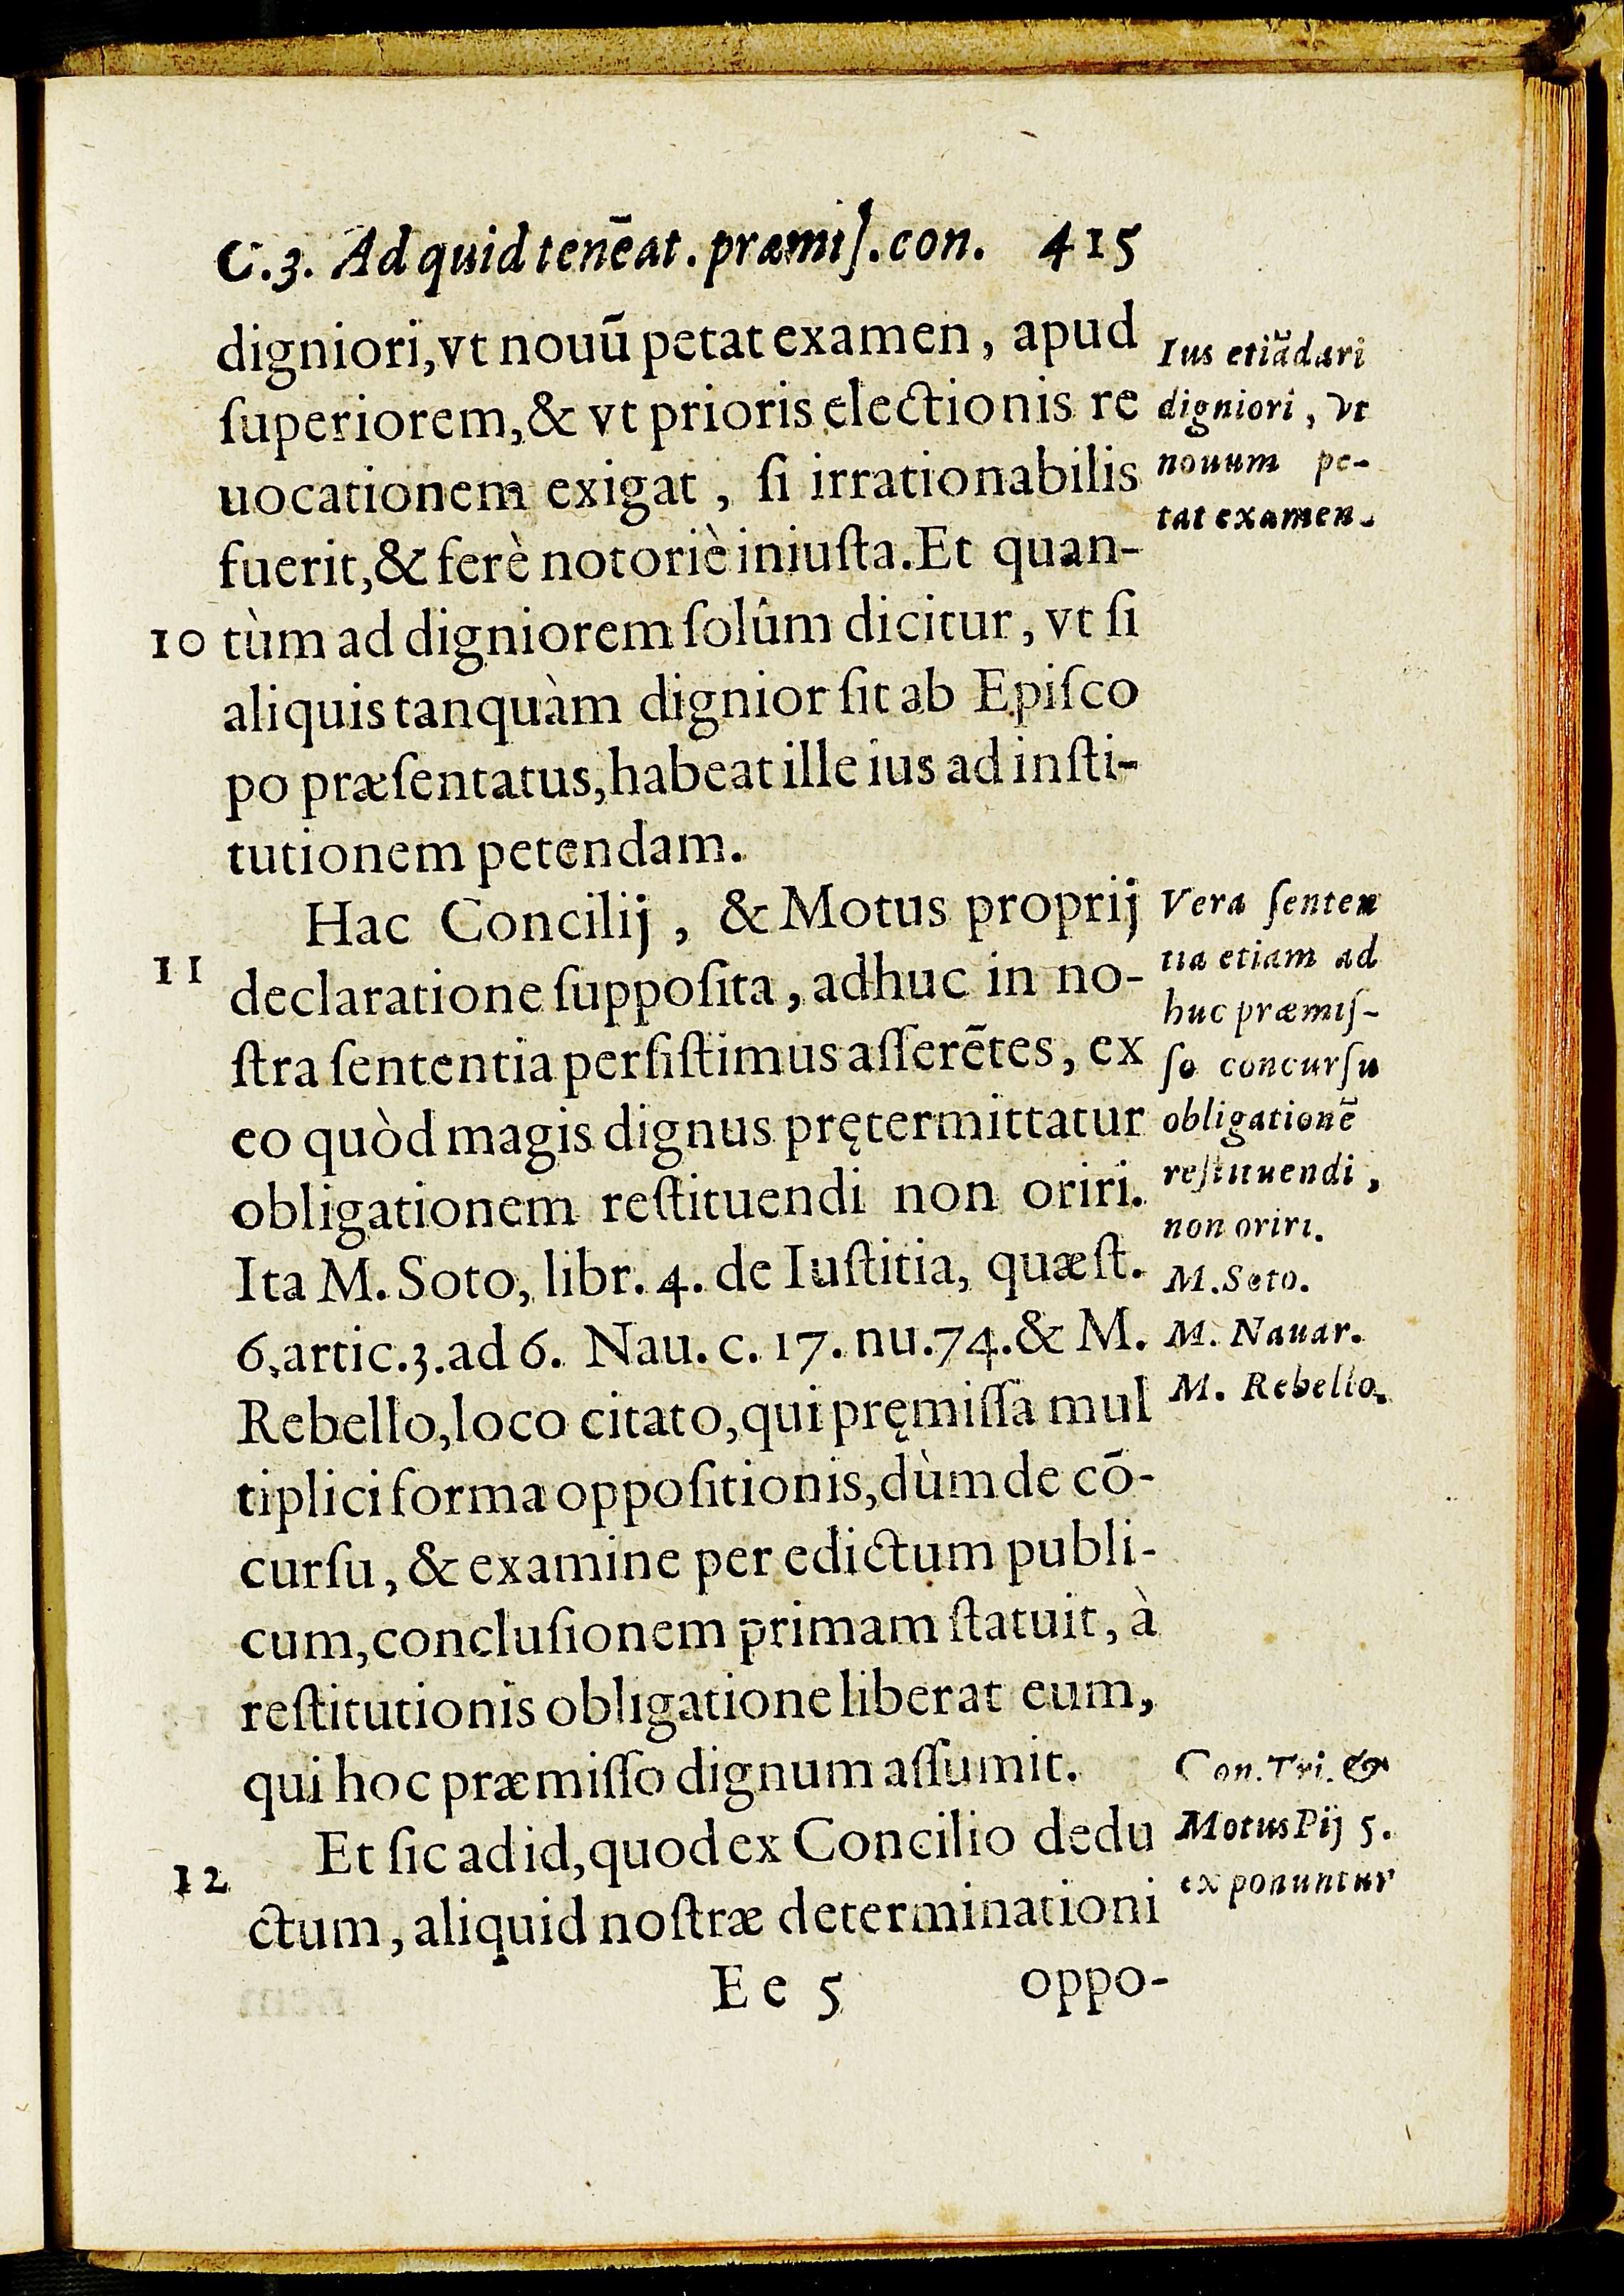 C.3. Ad quid tenēat. præmiſ. con. 415
digniori, vt nouū petat examen, apud
ſuperiorem, & vt prioris electionis re
uocationem exigat, ſi irrationabilis
fuerit, & ferè notoriè iniuſta. Et quan-
10 tùm ad digniorem ſolûm dicitur, vt ſi
aliquis tanquàm dignior ſit ab Epiſco
po præſentatus, habeat ille ius ad inſti-
tutionem petendam.
Hac Concilij, & Motus proprij
11 declaratione ſuppoſita, adhuc in no-
ſtra ſententia perſiſtimus aſſerētes, ex
eo quòd magis dignus prętermittatur
obligationem reſtituendi non oriri.
Ita M. Soto, libr. 4. de Iuſtitia, quæſt.
6. artic. 3. ad 6. Nau. c. 17. nu. 74. & M.
Rebello, loco citato, qui pręmiſſa mul
tiplici forma oppoſitionis, dùm de cō-
curſu, & examine per edictum publi-
cum, concluſionem primam ſtatuit, à
reſtitutionis obligatione liberat eum,
qui hoc præmiſſo dignum aſſumit.
Et ſic ad id, quod ex Concilio dedu
12 ctum, aliquid noſtræ determinationi
Ee 5 oppo-
Ius etiā dari
digniori, vt
nouum pe-
tat examen.
Vera ſenten
tia etiam ad
huc præmiſ-
ſo concurſu
obligationē
reſtituendi,
non oriri.
M. Soto.
M. Nauar.
M. Rebello.
Con. Tri. &
Motus Pij 5.
exponuntur